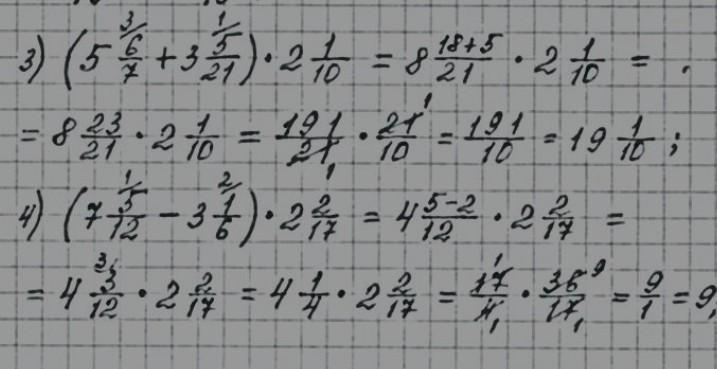 3) (5 6/7 + 3 5/21) · 2 1/10 = 8 18+5/21 · 2 1/10 =
= 8 23/21 · 2 1/10 = 191/21 · 21/10 = 191/10 = 19 1/10 ;
4) (7 5/12 − 3 1/6) · 2 2/17 = 4 5−2/12 · 2 2/17 =
= 4 3/12 · 2 2/17 = 4 1/4 · 2 2/17 = 17/4 · 36/17 = 9/1 = 9,